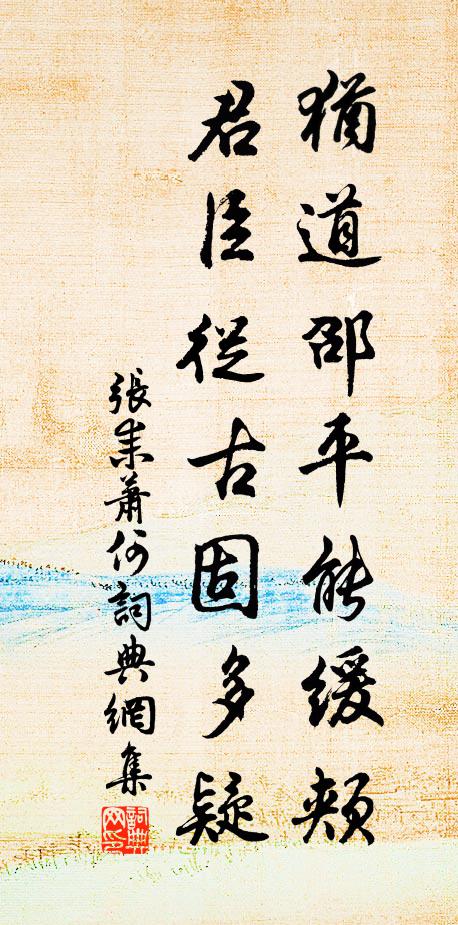 猶道邵平能緩頰
君臣從古固多疑
張耒蕭何詞典網集
詞典網印